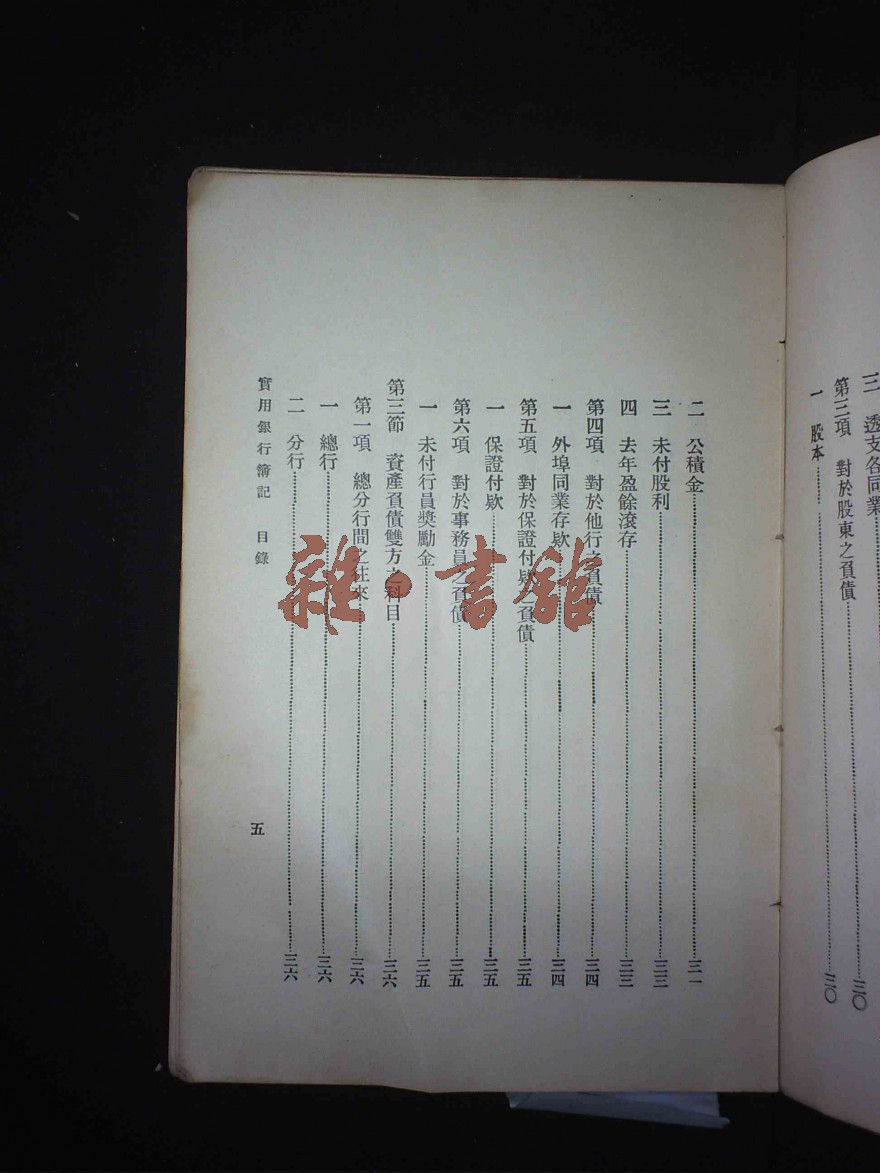 三　透支各同業
第三項　對於股東之負債……三〇
一　股本……三〇
二　公積金……三一
三　未付股利……三三
四　去年盈餘滾存……三三
第四項　對於他行之負債……三四
一　外埠同業存欵……三四
第五項　對於保證付欵之負債……三五
一　保證付欵……三五
第六項　對於事務員之負債……三五
一　未付行員獎勵金……三五
第三節　資產負債雙方之科目……三六
第一項　總分行間之往來……三六
一　總行……三六
二　分行……三六
實用銀行簿記　目錄
五
雜·書館